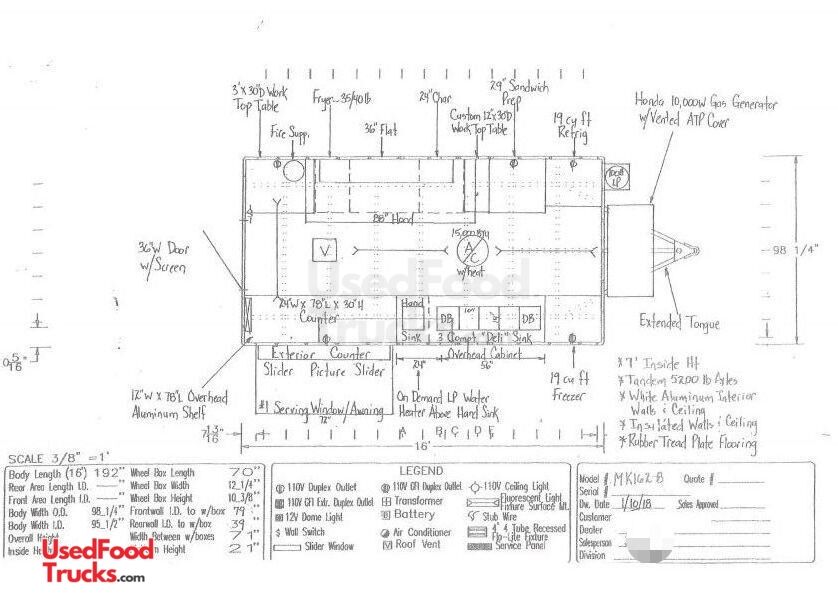 3'x30"D Work
Top Table
Fire Supp.
Fryer-35/40 lb
36" Flat
24" Char
Custom 12"x30"D
Work Top Table
29" Sandwich
Prep
19 cu ft
Refrig
Honda 10,000W Gas Generator
w/Vented ATP Cover
100lb
LP
88" Hood
36"W Door
w/Screen
V
15,000 Btu
A/C
w/heat
98 1/4"
UsedFood
Trucks
24"W x 78"L x 30"H
Counter
Hand
Sink
DB
DB
3 Compt. "Deli" Sink
Overhead Cabinet
24"
56"
Extended Tongue
Exterior Counter
Slider Picture Slider
#1 Serving Window/Awning
72"
12"W x 78"L Overhead
Aluminum Shelf
On Demand LP Water
Heater Above Hand Sink
19 cu ft
Freezer
* 7' Inside Ht
* Tandem 5200 lb Axles
* White Aluminum Interior
Walls & Ceiling
* Insulated Walls & Ceiling
* Rubber Tread Plate Flooring
A B C D E
16'
SCALE 3/8" =1'
Body Length (16') 192" Wheel Box Length 70"
Rear Area Length I.D. — " Wheel Box Width 12_1/4"
Front Area Length I.D. — " Wheel Box Height 10_3/8"
Body Width O.D. 98_1/4" Frontwall I.D. to w/box 79 "
Body Width I.D. 95_1/2" Rearwall I.D. to w/box 39 "
Overall Height Width Between w/boxes 71"
Inside Height Height 21"
LEGEND
110V Duplex Outlet
110V GFI Duplex Outlet
110V Ceiling Light
110V GFI Extr. Duplex Outlet
Transformer
Fluorescent Light
Fixture Surface Mt.
12V Dome Light
Battery
Stub Wire
Wall Switch
Air Conditioner
4' 4 Tube Recessed
Flo-Lite Fixture
Slider Window
Roof Vent
Service Panel
Model # MK162-8 Quote #
Serial #
Dw. Date 1/10/18 Sales Approved
Customer
Dealer
Salesperson
Division
UsedFood
Trucks.com